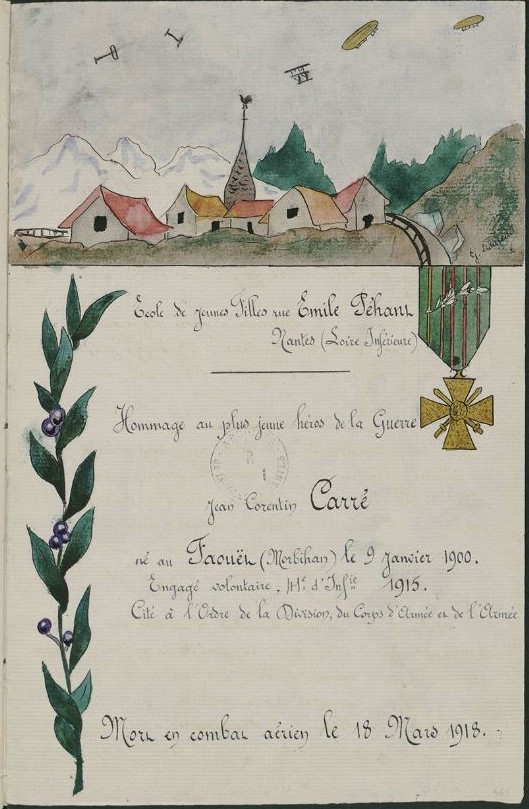 Ecole de Jeunes Filles rue Emile Péhant
Nantes (Loire Inférieure)
Hommage au plus jeune héros de la Guerre
Jean Corentin Carré
né au Faouët (Morbihan) le 9 Janvier 1900.
Engagé volontaire, 41e d'Infie 1915.
Cité à l'Ordre de la Division, du Corps d'Armée et de l'Armée
Mort en combat aérien le 18 Mars 1918.